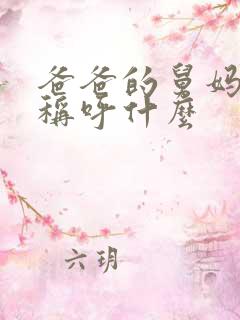 爸爸的舅妈
稱呼什麼
六玥